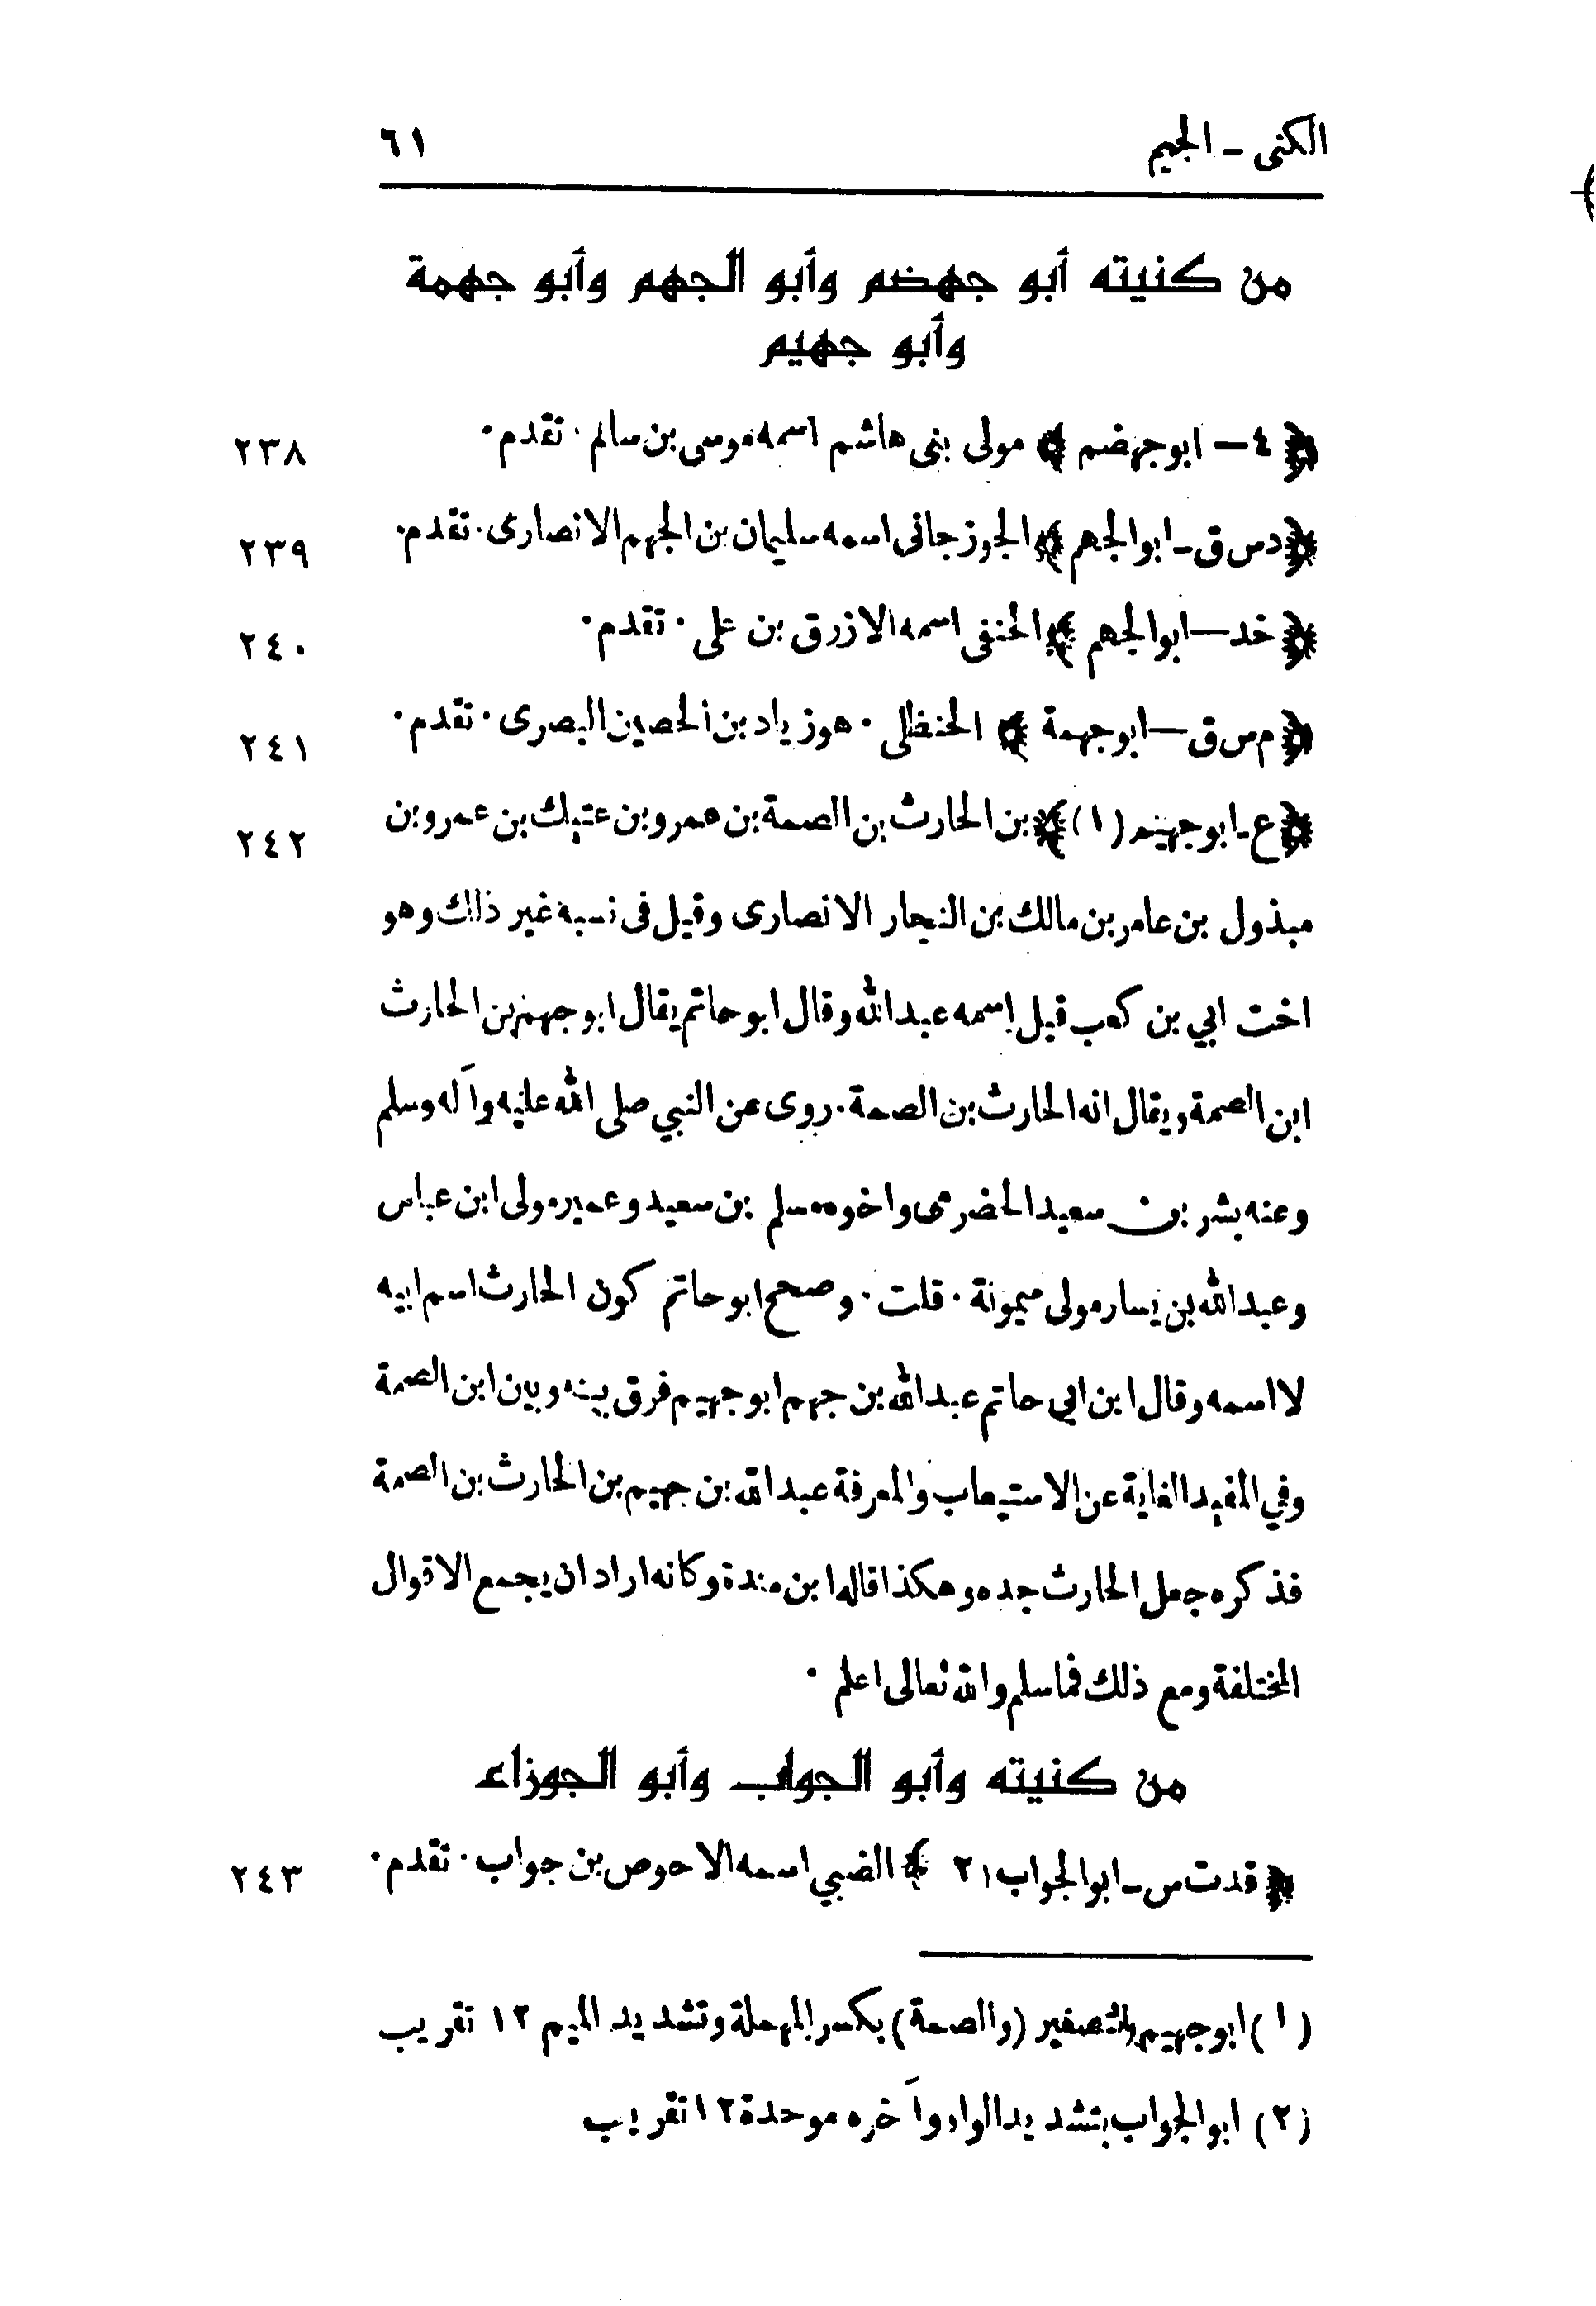 الكنى - الجيم ٦١
من كنيته أبو جهضم وأبو الجهم وأبو جهمة
وأبو جهيم
﴿ ٤ – ابو جهضم ﴾ مولى بنى هاشم اسمه موسى بن سالم · تقدم · ٢٣٨
﴿ د س ق - ابو الجهم ﴾ الجوزجانى اسمه سليمان بن الجهم الانصارى · تقدم · ٢٣٩
﴿ خد – ابو الجهم ﴾ الحنفى اسمه الازرق بن على · تقدم · ٢٤٠
﴿ م س ق – ابو جهمة ﴾ الحنظلى · هو زياد بن الحصين البصرى · تقدم · ٢٤١
﴿ ع - ابو جهيم (١) ﴾ بن الحارث بن الصمة بن عمرو بن عتيك بن عمرو بن ٢٤٢
مبذول بن عامر بن مالك بن النجار الانصارى وقيل فى نسبه غير ذلك وهو
اخت ابي بن كعب قيل اسمه عبد الله وقال ابو حاتم يقال ابو جهيم بن الحارث
ابن الصمة ويقال انه الحارث بن الصمة · روى عن النبي صلى الله عليه وآله وسلم
وعنه بشر بن سعيد الحضرمى واخوه مسلم بن سعيد وعمير مولى ابن عباس
وعبد الله بن يسار مولى ميمونة · قلت · وصحح ابو حاتم كون الحارث اسم ابيه
لا اسمه وقال ابن ابي حاتم عبد الله بن جهم ابو جهيم فرق بينه وبين ابن الصمة
وفي المفيد الغاية عن الاستيعاب والمعرفة عبد الله بن جهيم بن الحارث بن الصمة
فذكره جعل الحارث جده وهكذا قاله ابن مندة وكانه اراد ان يجمع الاقوال
المختلفة ومع ذلك فما سلم والله تعالى اعلم ·
من كنيته وأبو الجواب وأبو الجوزاء
﴿ قد ت س - ابو الجواب ٢١ ﴾ الضبي اسمه الاحوص بن جواب · تقدم · ٢٤٣
(١) ابو جهيم بالتصغير (والصمة) بكسر المهملة وتشديد الميم ١٢ تقريب
(٢) ابو الجواب بتشديد الواو وآخره موحدة ١٢ تقريب